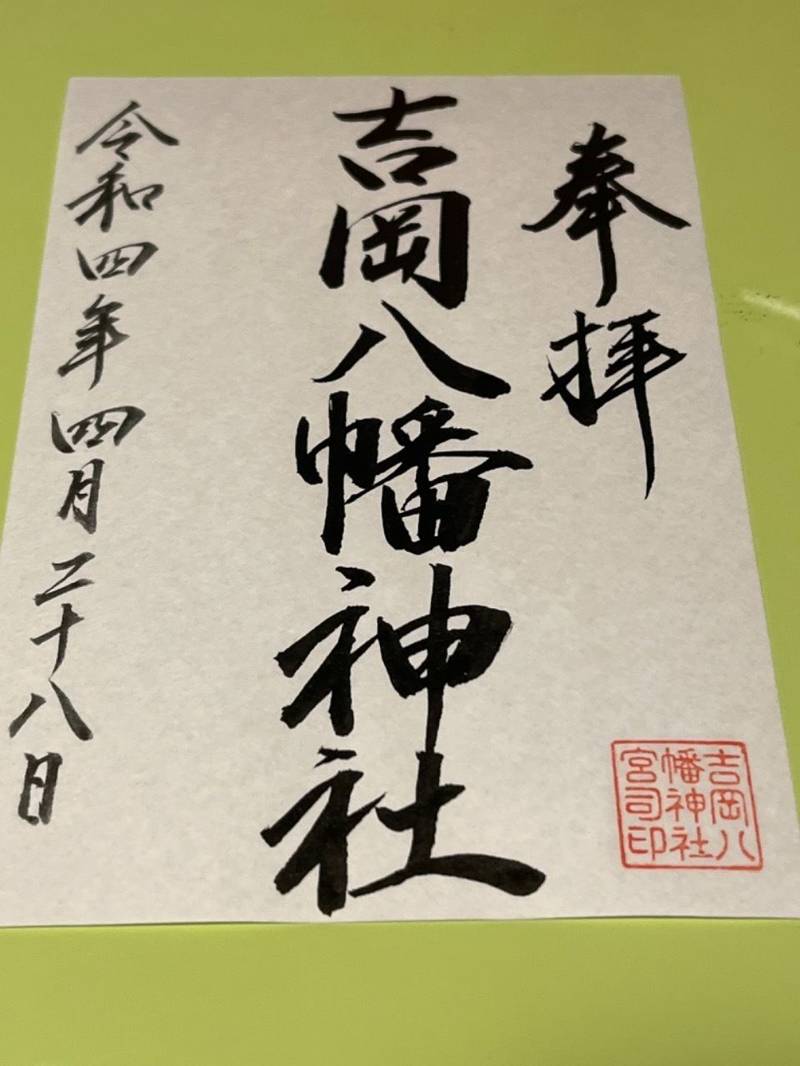 奉拝
吉岡八幡神社
令和四年四月二十八日
吉岡八
幡神社
宮司印